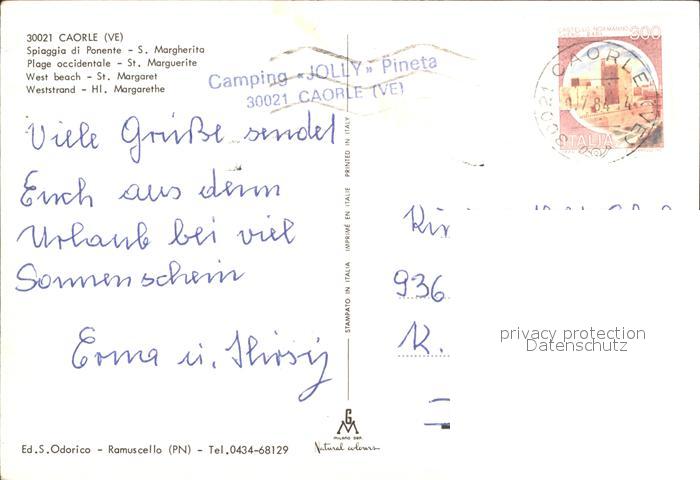 30021 CAORLE (VE)
Spiaggia di Ponente - S. Margherita
Plage occidentale - St. Marguerite
West beach - St. Margaret
Weststrand - Hl. Margarethe
Camping «JOLLY» Pineta
30021 CAORLE (VE)
300
ITALIA
30021 CAORLE (VE)
Viele Grüße sendet
Euch aus dem
Urlaub bei viel
Sonnenschein
Erma u.
STAMPATO IN ITALIA IMPRIMÉ EN ITALIE PRINTED IN ITALY
936
K.
privacy protection
Datenschutz
GM
MILANO
Natural colours
Ed.S.Odorico - Ramuscello (PN) - Tel.0434-68129